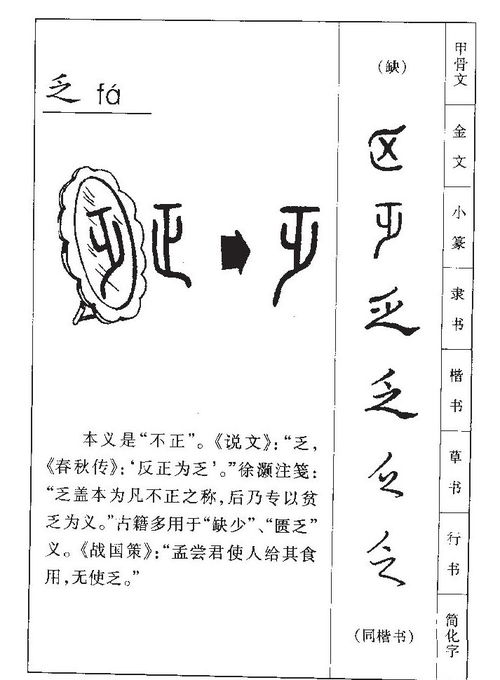 乏 fá
本义是“不正”。《说文》：“乏，
《春秋传》：‘反正为乏’。”徐灏注笺：
“乏盖本为凡不正之称，后乃专以贫
乏为义。”古籍多用于“缺少”、“匮乏”
义。《战国策》：“孟尝君使人给其食
用，无使乏。”
（缺）
甲骨文
金文
小篆
隶书
楷书
草书
行书
（同楷书）
简化字